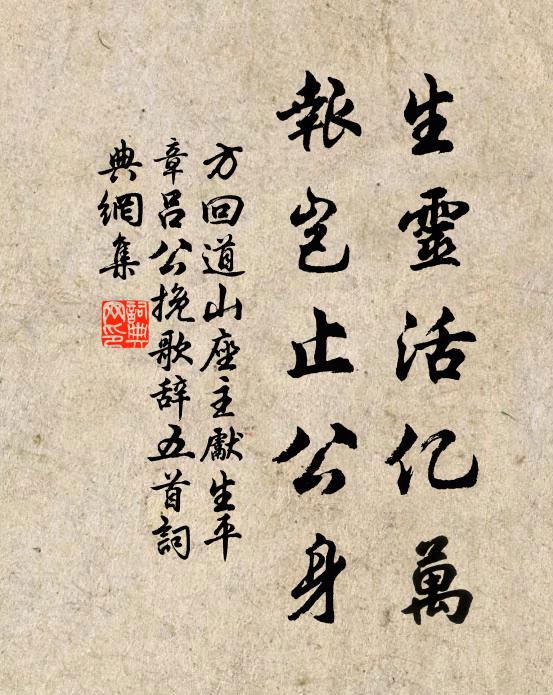 生靈活亿萬
報岂止公身
方回道山座主獻生平
章吕公挽歌辞五首詞
典網集
詞典
网印